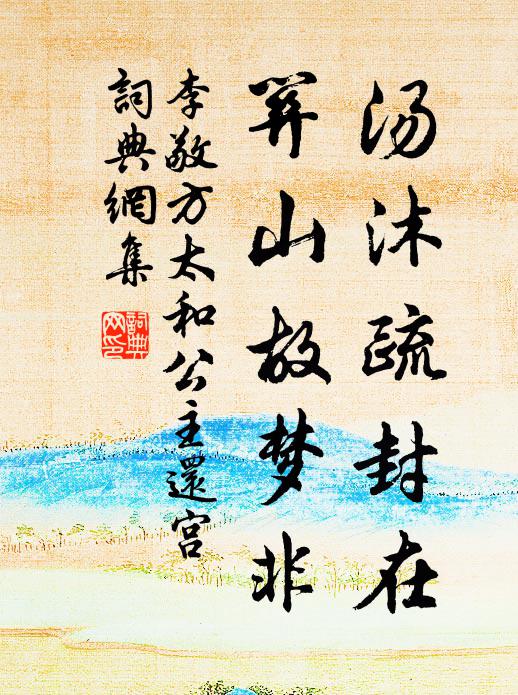 汤沐疏封在
关山故梦非
李敬方太和公主還宫
詞典網集
詞典
网印